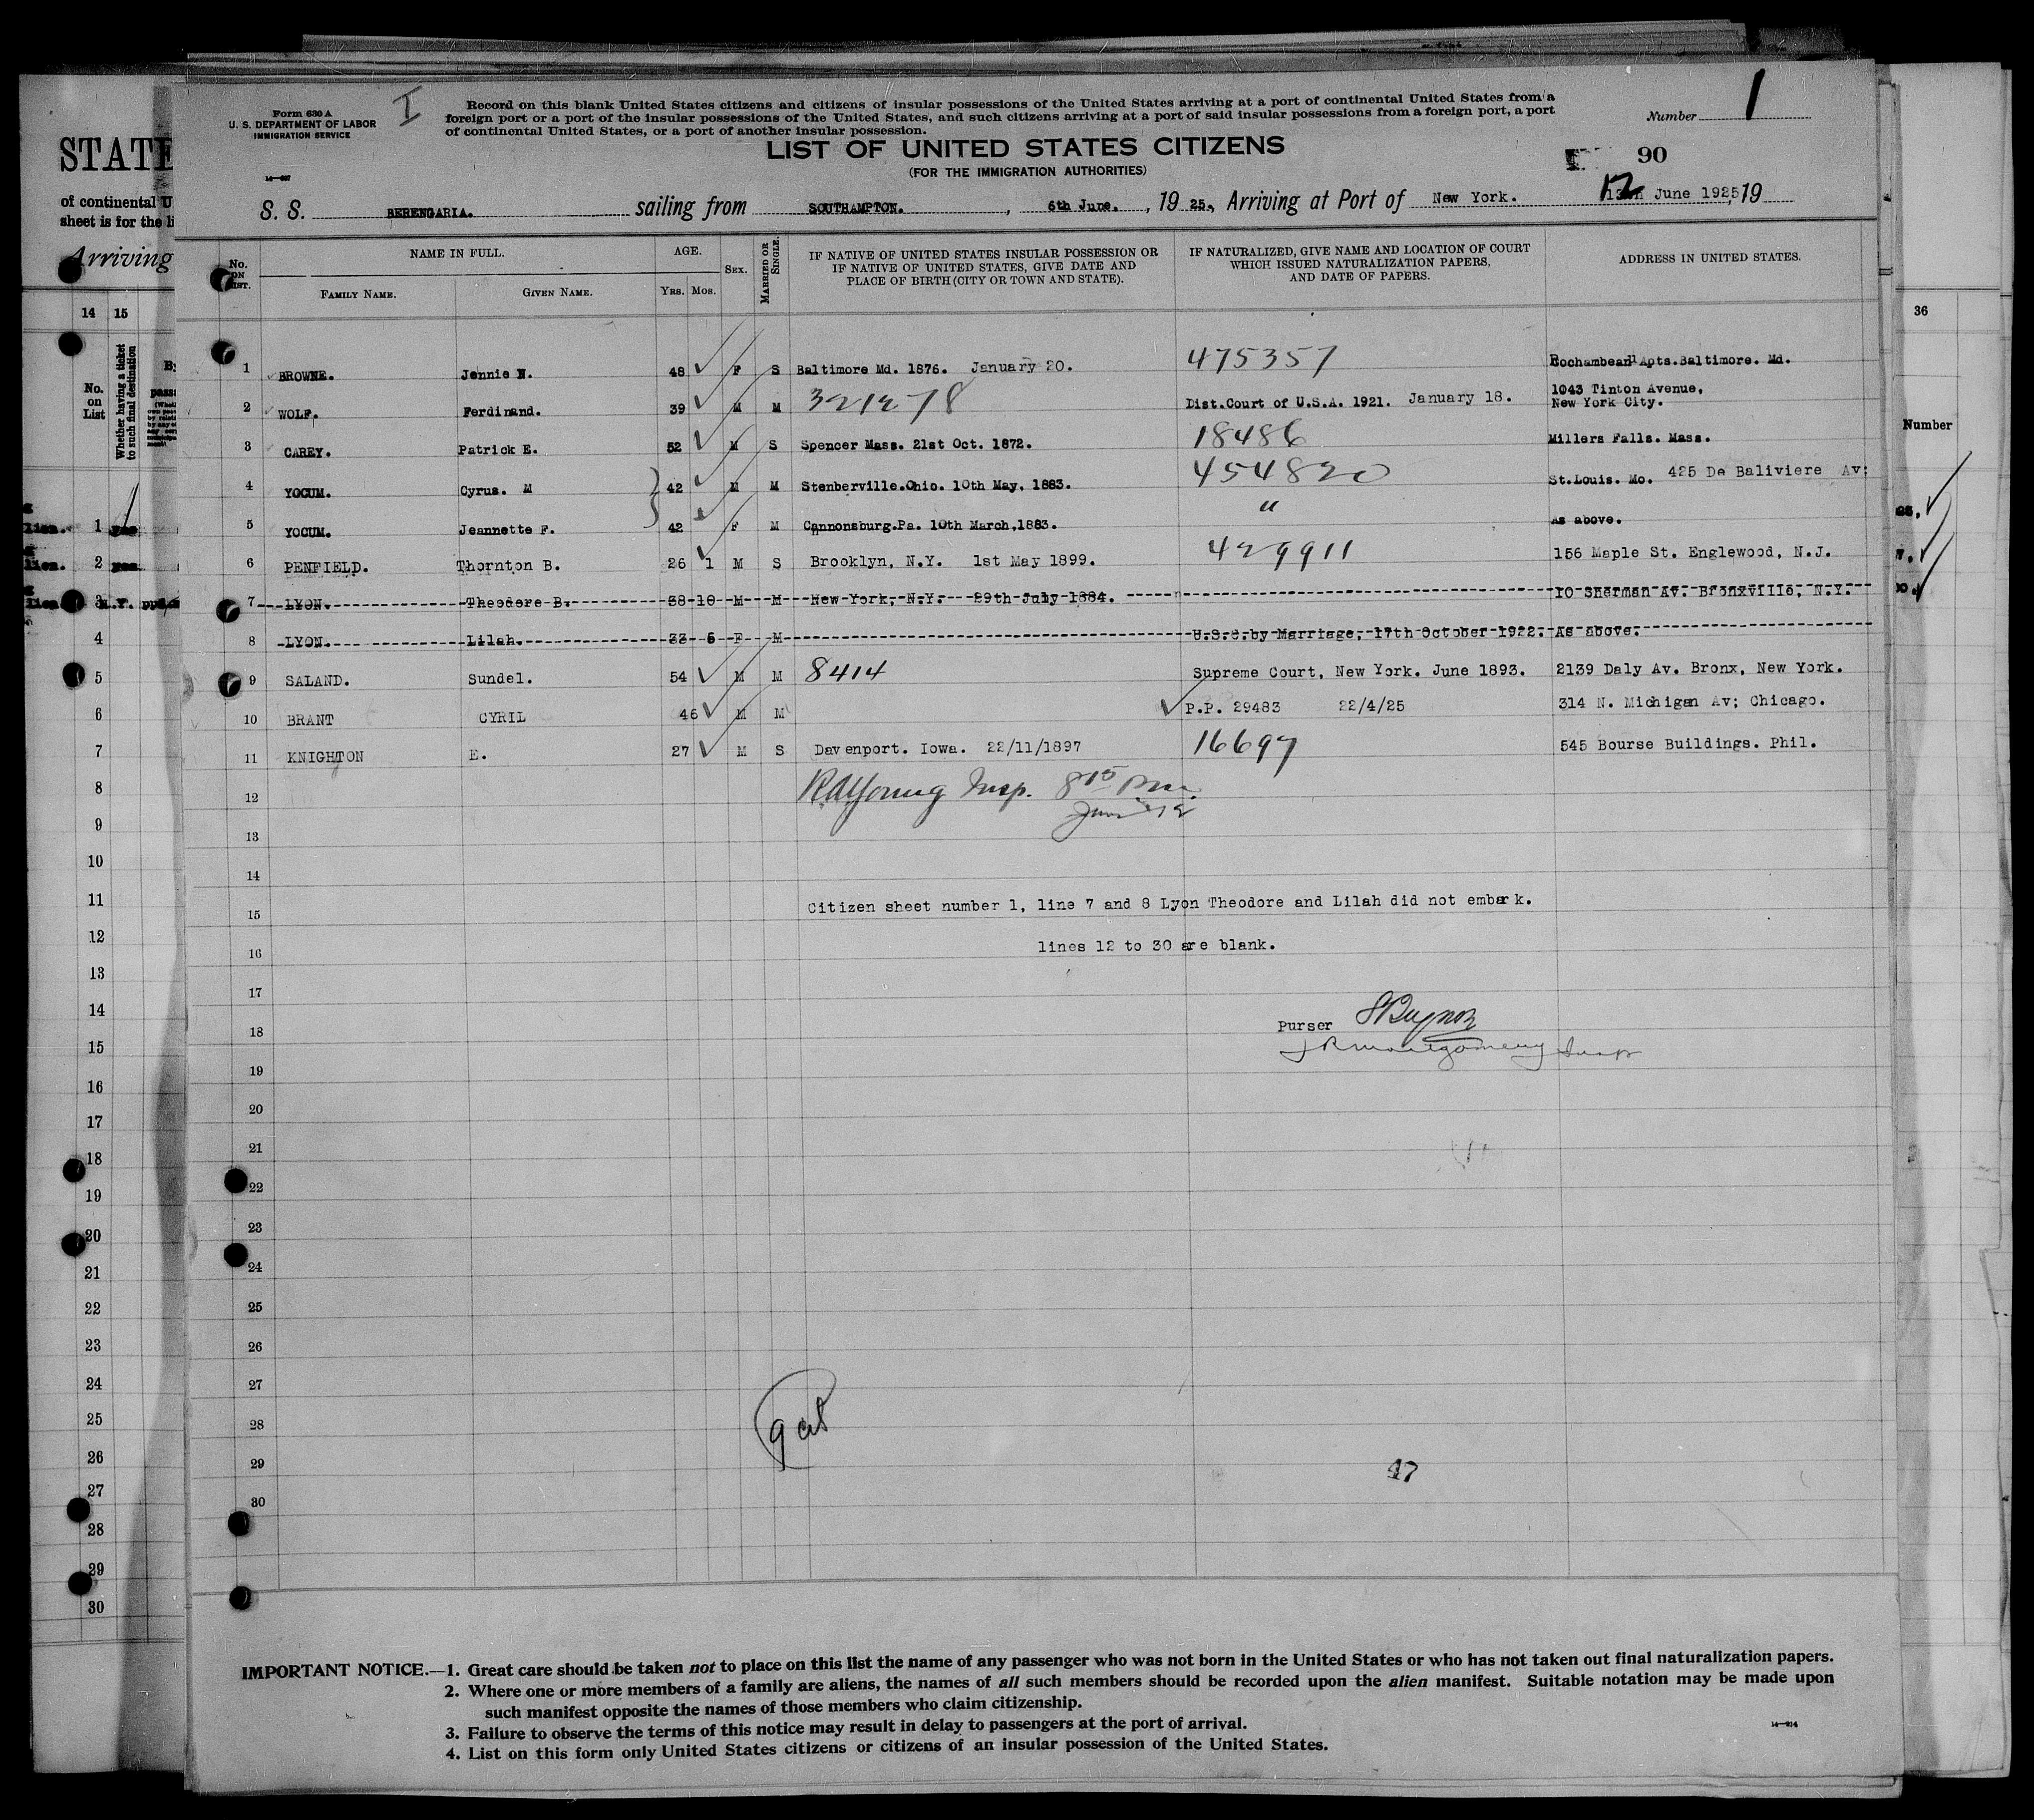 Form 630 A
U. S. DEPARTMENT OF LABOR
IMMIGRATION SERVICE
I
Record on this blank United States citizens and citizens of insular possessions of the United States arriving at a port of continental United States from a
foreign port or a port of the insular possessions of the United States, and such citizens arriving at a port of said insular possessions from a foreign port, a port
of continental United States, or a port of another insular possession.
Number 1
LIST OF UNITED STATES CITIZENS
(FOR THE IMMIGRATION AUTHORITIES)
90
S. S. BERENGARIA. sailing from SOUTHAMPTON. , 6th June. , 19 25. , Arriving at Port of New York. 12 June 1925, 19
No. ON LIST.
NAME IN FULL.
FAMILY NAME. GIVEN NAME.
AGE.
YRS. MOS.
SEX.
MARRIED OR SINGLE.
IF NATIVE OF UNITED STATES INSULAR POSSESSION OR
IF NATIVE OF UNITED STATES, GIVE DATE AND
PLACE OF BIRTH (CITY OR TOWN AND STATE).
IF NATURALIZED, GIVE NAME AND LOCATION OF COURT
WHICH ISSUED NATURALIZATION PAPERS,
AND DATE OF PAPERS.
ADDRESS IN UNITED STATES.
1 BROWNE. Jennie N. 48 F S Baltimore Md. 1876. January 20. 475357 Rochambeau Apts. Baltimore. Md.
2 WOLF. Ferdinand. 39 M M 321278 Dist. Court of U.S.A. 1921. January 18. 1043 Tinton Avenue,
New York City.
3 CAREY. Patrick E. 52 M S Spencer Mass. 21st Oct. 1872. 18486 Millers Falls. Mass.
4 YOCUM. Cyrus. M 42 M M Stenberville. Ohio. 10th May, 1883. 454820 St. Louis. Mo. 425 De Baliviere Av;
5 YOCUM. Jeannette F. 42 F M Cannonsburg. Pa. 10th March, 1883. " As above.
6 PENFIELD. Thornton B. 26 1 M S Brooklyn, N.Y. 1st May 1899. 429911 156 Maple St. Englewood, N.J.
7 LYON. Theodore B. 38 10 M M New York, N.Y. 29th July 1884. 10 Sherman Av. Bronxville, N.Y.
8 LYON. Lilah. 33 6 F M U.S.C. by Marriage, 17th October 1922. As above.
9 SALAND. Sundel. 54 M M 8414 Supreme Court, New York. June 1893. 2139 Daly Av. Bronx, New York.
10 BRANT CYRIL 46 M M P.P. 29483 22/4/25 314 N. Michigan Av; Chicago.
11 KNIGHTON E. 27 M S Davenport. Iowa. 22/11/1897 16697 545 Bourse Buildings. Phil.
12 RAYoung Insp. 8 15 pm.
June 12
13
14
15 Citizen sheet number 1, line 7 and 8 Lyon Theodore and Lilah did not embark.
16 lines 12 to 30 are blank.
17
18 Purser
J R Montgomery Insp
19
20
21
22
23
24
25
26
27
28
29 47
30
IMPORTANT NOTICE.—1. Great care should be taken not to place on this list the name of any passenger who was not born in the United States or who has not taken out final naturalization papers.
2. Where one or more members of a family are aliens, the names of all such members should be recorded upon the alien manifest. Suitable notation may be made upon
such manifest opposite the names of those members who claim citizenship.
3. Failure to observe the terms of this notice may result in delay to passengers at the port of arrival.
4. List on this form only United States citizens or citizens of an insular possession of the United States.
STATE
of continental U
sheet is for the li
Arriving
14 15
No. on List
Whether having a ticket to such final destination
1 yes
2 yes
3
4
5
6
7
8
9
10
11
12
13
14
15
16
17
18
19
20
21
22
23
24
25
26
27
28
29
30
36
Number